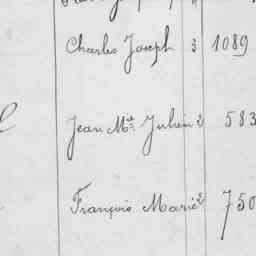 Charles Joseph 3 1089
Jean Mie Julien 2 583
François Marie 2 750